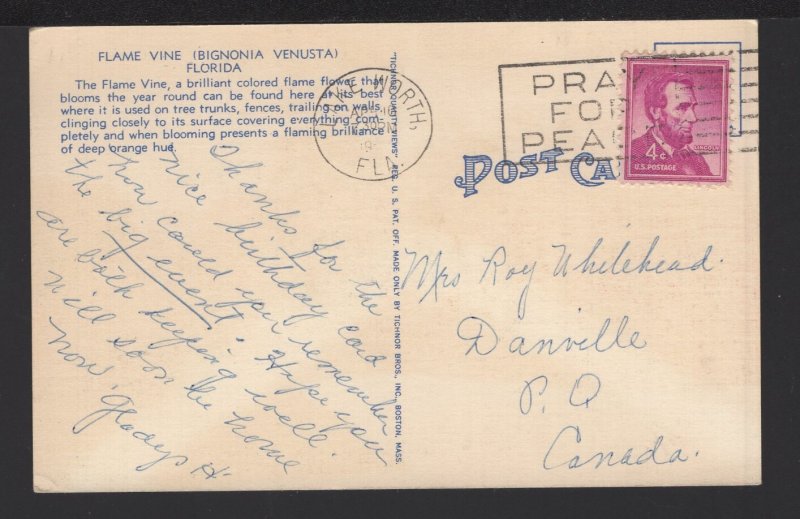 FLAME VINE (BIGNONIA VENUSTA)
FLORIDA
The Flame Vine, a brilliant colored flame flower that
blooms the year round can be found here at its best
where it is used on tree trunks, fences, trailing on walls,
clinging closely to its surface covering everything com-
pletely and when blooming presents a flaming brilliance
of deep orange hue.
Thanks for the
nice birthday card
how could you remember
the big event. Hope you
are both keeping well.
Will soon be home
now. Gladys H.
"TICHNOR QUALITY VIEWS" REG. U. S. PAT. OFF. MADE ONLY BY TICHNOR BROS., INC., BOSTON, MASS.
LAKE WORTH,
FLA.
PRAY
FOR
PEACE
POST CA
4¢
LINCOLN
U.S. POSTAGE
Mrs Roy Whitehead.
Danville
P. Q
Canada.